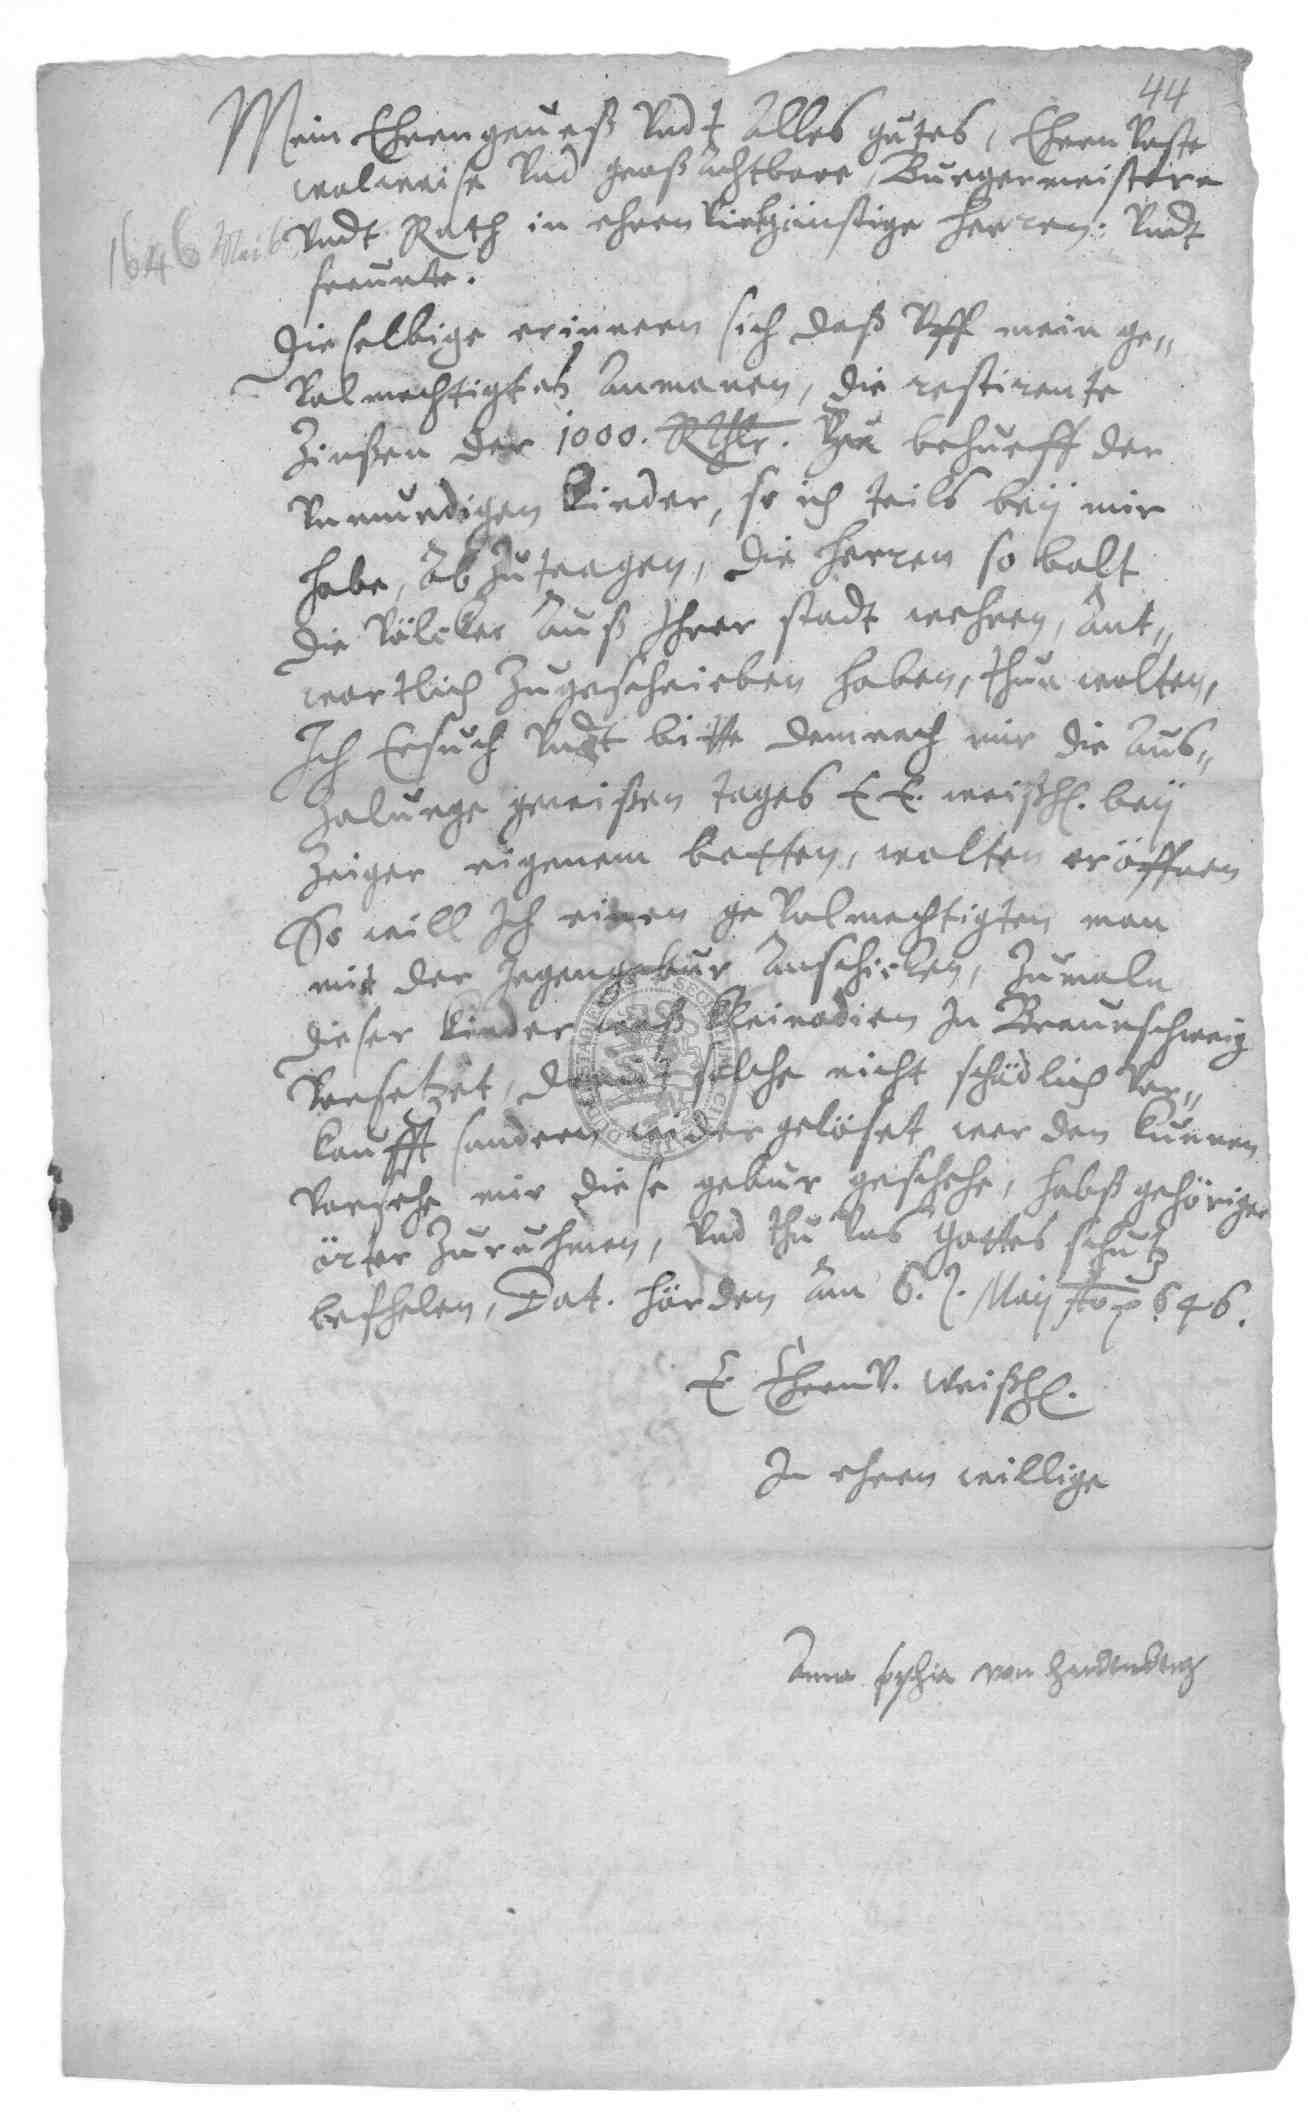 44
Mein Ehrengrueß Vndt Alles gutes, Ehren Veste
wolweise Vnd groß Achtbare, Burgermeistere
1646 Mai 6
Vndt Rath in ehren Vielgünstige Herren: Vndt
freunte.
Dieselbige erinnern sich daß Vff mein ge„
Volmechtigtes Anmanen, die restirente
Zinßen der 1000. Rthlr. Zu behueff der
Vnmundigen Kinder, so ich teils beÿ mir
habe, Ab zu tragen, die Herren so balt
die Völcker Auß Ihrer stadt wehren, Ant„
wortlich Zugeschrieben haben, thun wolten,
Ich Ersuch Vndt bitte demnach mir die Aus„
Zalunge gewißen tages E E. weißhl. beÿ
Zeiger eigenem botten, wolten eröffnen
So will Ich einen geVolmechtigten man
mit der gegengebur Anschicken, Zumaln
dieser Kinder Kleinodien In Braunschweig
Versetzet, damit solche nicht schädlich Ver„
kaufft sondern wider gelöset werden kunnen
Versehe mir diese gebur geschehe, habß gehöriger
örter Zuruhmen, Vnd thu Vns Gottes schutz
befehelen, Dat. Hörden Am 6. Maÿ 646.
E EhrenV. weißhl.
In ehren willige
Anna sophia von